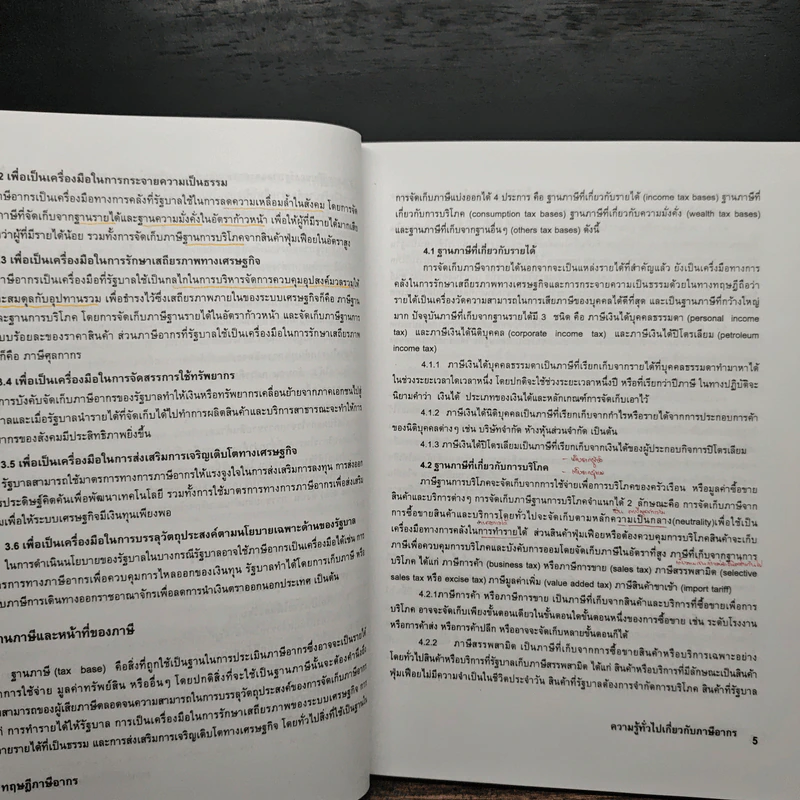 2 เพื่อเป็นเครื่องมือในการกระจายความเป็นธรรม
ภาษีอากรเป็นเครื่องมือทางการคลังที่รัฐบาลใช้ในการลดความเหลื่อมล้ำในสังคม โดยการจัด
ภาษีที่จัดเก็บจากฐานรายได้และฐานความมั่งคั่งในอัตราก้าวหน้า เพื่อให้ผู้ที่มีรายได้มากเสีย
ว่าผู้ที่มีรายได้น้อย รวมทั้งการจัดเก็บภาษีฐานการบริโภคจากสินค้าฟุ่มเฟือยในอัตราสูง
3 เพื่อเป็นเครื่องมือในการรักษาเสถียรภาพทางเศรษฐกิจ
ภาษีอากรเป็นเครื่องมือที่รัฐบาลใช้เป็นกลไกในการบริหารจัดการควบคุมอุปสงค์มวลรวมให้
และสมดุลกับอุปทานรวม เพื่อธำรงไว้ซึ่งเสถียรภาพภายในของระบบเศรษฐกิจก็คือ ภาษีฐาน
และฐานการบริโภค โดยการจัดเก็บภาษีฐานรายได้ในอัตราก้าวหน้า และจัดเก็บภาษีฐานการ
บบร้อยละของราคาสินค้า ส่วนภาษีอากรที่รัฐบาลใช้เป็นเครื่องมือในการรักษาเสถียรภาพ
ก็คือ ภาษีศุลกากร
3.4 เพื่อเป็นเครื่องมือในการจัดสรรการใช้ทรัพยากร
การบังคับจัดเก็บภาษีอากรของรัฐบาลทำให้เงินหรือทรัพยากรเคลื่อนย้ายจากภาคเอกชนไปสู่
าลและเมื่อรัฐบาลนำรายได้ที่จัดเก็บได้ไปทำการผลิตสินค้าและบริการสาธารณะจะทำให้การ
ากรของสังคมมีประสิทธิภาพยิ่งขึ้น
3.5 เพื่อเป็นเครื่องมือในการส่งเสริมการเจริญเติบโตทางเศรษฐกิจ
รัฐบาลสามารถใช้มาตรการทางการภาษีอากรให้แรงจูงใจในการส่งเสริมการลงทุน การส่งออก
ารประดิษฐ์คิดค้นเพื่อพัฒนาเทคโนโลยี รวมทั้งการใช้มาตรการทางการภาษีอากรเพื่อส่งเสริม
มเพื่อให้ระบบเศรษฐกิจมีเงินทุนเพียงพอ
3.6 เพื่อเป็นเครื่องมือในการบรรลุวัตถุประสงค์ตามนโยบายเฉพาะด้านของรัฐบาล
ในการดำเนินนโยบายของรัฐบาลในบางกรณีรัฐบาลอาจใช้ภาษีอากรเป็นเครื่องมือได้เช่น การ
การทางภาษีอากรเพื่อควบคุมการไหลออกของเงินทุน รัฐบาลทำได้โดยการเก็บภาษี หรือ
บภาษีการเดินทางออกราชอาณาจักรเพื่อลดการนำเงินตราออกนอกประเทศ เป็นต้น
านภาษีและหน้าที่ของภาษี
ฐานภาษี (tax base) คือสิ่งที่ถูกใช้เป็นฐานในการประเมินภาษีอากรซึ่งอาจจะเป็นรายได้
าการใช้จ่าย มูลค่าทรัพย์สิน หรืออื่นๆ โดยปกติสิ่งที่จะใช้เป็นฐานภาษีนั้นจะต้องคำนึงถึง
ามสามารถของผู้เสียภาษีตลอดจนความสามารถในการบรรลุวัตถุประสงค์ของการจัดเก็บภาษีอากร
ก่ การทำรายได้ให้รัฐบาล การเป็นเครื่องมือในการรักษาเสถียรภาพของระบบเศรษฐกิจ การ
ายรายได้ที่เป็นธรรม และการส่งเสริมการเจริญเติบโตทางเศรษฐกิจ โดยทั่วไปสิ่งที่ใช้เป็นฐานใน
ทฤษฎีภาษีอากร
การจัดเก็บภาษีแบ่งออกได้ 4 ประการ คือ ฐานภาษีที่เกี่ยวกับรายได้ (income tax bases) ฐานภาษีที่
เกี่ยวกับการบริโภค (consumption tax bases) ฐานภาษีที่เกี่ยวกับความมั่งคั่ง (wealth tax bases)
และฐานภาษีที่เก็บจากฐานอื่นๆ (others tax bases) ดังนี้
4.1 ฐานภาษีที่เกี่ยวกับรายได้
การจัดเก็บภาษีจากรายได้นอกจากจะเป็นแหล่งรายได้ที่สำคัญแล้ว ยังเป็นเครื่งมือทางการ
คลังในการรักษาเสถียรภาพทางเศรษฐกิจและการกระจายความเป็นธรรมด้วยในทางทฤษฎีถือว่า
รายได้เป็นเครื่องวัดความสามารถในการเสียภาษีของบุคคลได้ดีที่สุด และเป็นฐานภาษีที่กว้างใหญ่
มาก ปัจจุบันภาษีที่เก็บจากฐานรายได้มี 3 ชนิด คือ ภาษีเงินได้บุคคลธรรมดา (personal income
tax) และภาษีเงินได้นิติบุคคล (corporate income tax) และภาษีเงินได้ปิโตรเลียม (petroleum
income tax)
4.1.1 ภาษีเงินได้บุคคลธรรมดาเป็นภาษีที่เรียกเก็บจากรายได้ที่บุคคลธรรมดาทำมาหาได้
ในช่วงระยะเวลาใดเวลาหนึ่ง โดยปกติจะใช้ช่วงระยะเวลาหนึ่งปี หรือที่เรียกว่าปีภาษี ในทางปฏิบัติจะ
นิยามคำว่า เงินได้ ประเภทของเงินได้และหลักเกณฑ์การจัดเก็บเอาไว้
4.1.2 ภาษีเงินได้นิติบุคคลเป็นภาษีที่เรียกเก็บจากกำไรหรือรายได้จากการประกอบการค้า
ของนิติบุคคลต่างๆ เช่น บริษัทจำกัด ห้างหุ้นส่วนจำกัด เป็นต้น
4.1.3 ภาษีเงินได้ปิโตรเลียมเป็นภาษีที่เรียกเก็บจากเงินได้ของผู้ประกอบกิจการปิโตรเลียม
4.2 ฐานภาษีที่เกี่ยวกับการบริโภค
ภาษีฐานการบริโภคจะจัดเก็บจากการใช้จ่ายเพื่อการบริโภคของครัวเรือน หรือมูลค่าซื้อขาย
สินค้าและบริการต่างๆ การจัดเก็บภาษีฐานการบริโภคจำแนกได้ 2 ลักษณะคือ การจัดเก็บภาษีจาก
การซื้อขายสินค้าและบริการโดยทั่วไปจะจัดเก็บตามหลักความเป็นกลาง(neutrality)เพื่อใช้เป็น
เครื่องมือทางการคลังในการทำรายได้ ส่วนสินค้าฟุ่มเฟือยหรือต้องควบคุมการบริโภคสินค้าจะเก็บ
ภาษีเพื่อควบคุมการบริโภคและบังคับการออมโดยจัดเก็บภาษีในอัตราที่สูง ภาษีที่เก็บจากฐานการ
บริโภค ได้แก่ ภาษีการค้า (business tax) หรือภาษีการขาย (sales tax) ภาษีสรรพสามิต (selective
sales tax หรือ excise tax) ภาษีมูลค่าเพิ่ม (value added tax) ภาษีสินค้าขาเข้า (import tariff)
4.2.1ภาษีการค้า หรือภาษีการขาย เป็นภาษีที่เก็บจากสินค้าและบริการที่ซื้อขายเพื่อการ
บริโภค อาจจะจัดเก็บเพียงขั้นตอนเดียวในขั้นตอนใดขั้นตอนหนึ่งของการซื้อขาย เช่น ระดับโรงงาน
หรือการค้าส่ง หรือการค้าปลีก หรืออาจจะจัดเก็บหลายขั้นตอนก็ได้
4.2.2 ภาษีสรรพสามิต เป็นภาษีที่เก็บจากการซื้อขายสินค้าหรือบริการเฉพาะอย่าง
โดยทั่วไปสินค้าหรือบริการที่รัฐบาลเก็บภาษีสรรพสามิต ได้แก่ สินค้าหรือบริการที่มีลักษณะเป็นสินค้า
ฟุ่มเฟือยไม่มีความจำเป็นในชีวิตประจำวัน สินค้าที่รัฐบาลต้องการจำกัดการบริโภค สินค้าที่รัฐบาล
ความรู้ทั่วไปเกี่ยวกับภาษีอากร
5